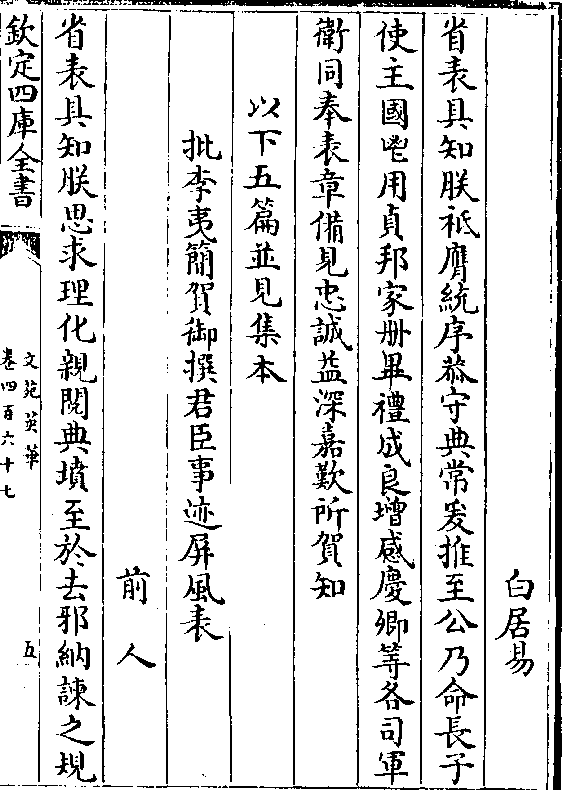 白居易
省表具知朕祗膺統序恭守典常爰推至公乃命長子
使主國鬯用貞邦家册畢禮成良增感慶卿等各司軍
衛同奉表章備見忠誠益深嘉歎所賀知
以下五篇並見集本
批李夷簡賀御撰君臣事迹屏風表
前人
省表具知朕思求理化親閲典墳至於去邪納諫之規
欽定四庫全書
文苑英華
卷四百六十七
五